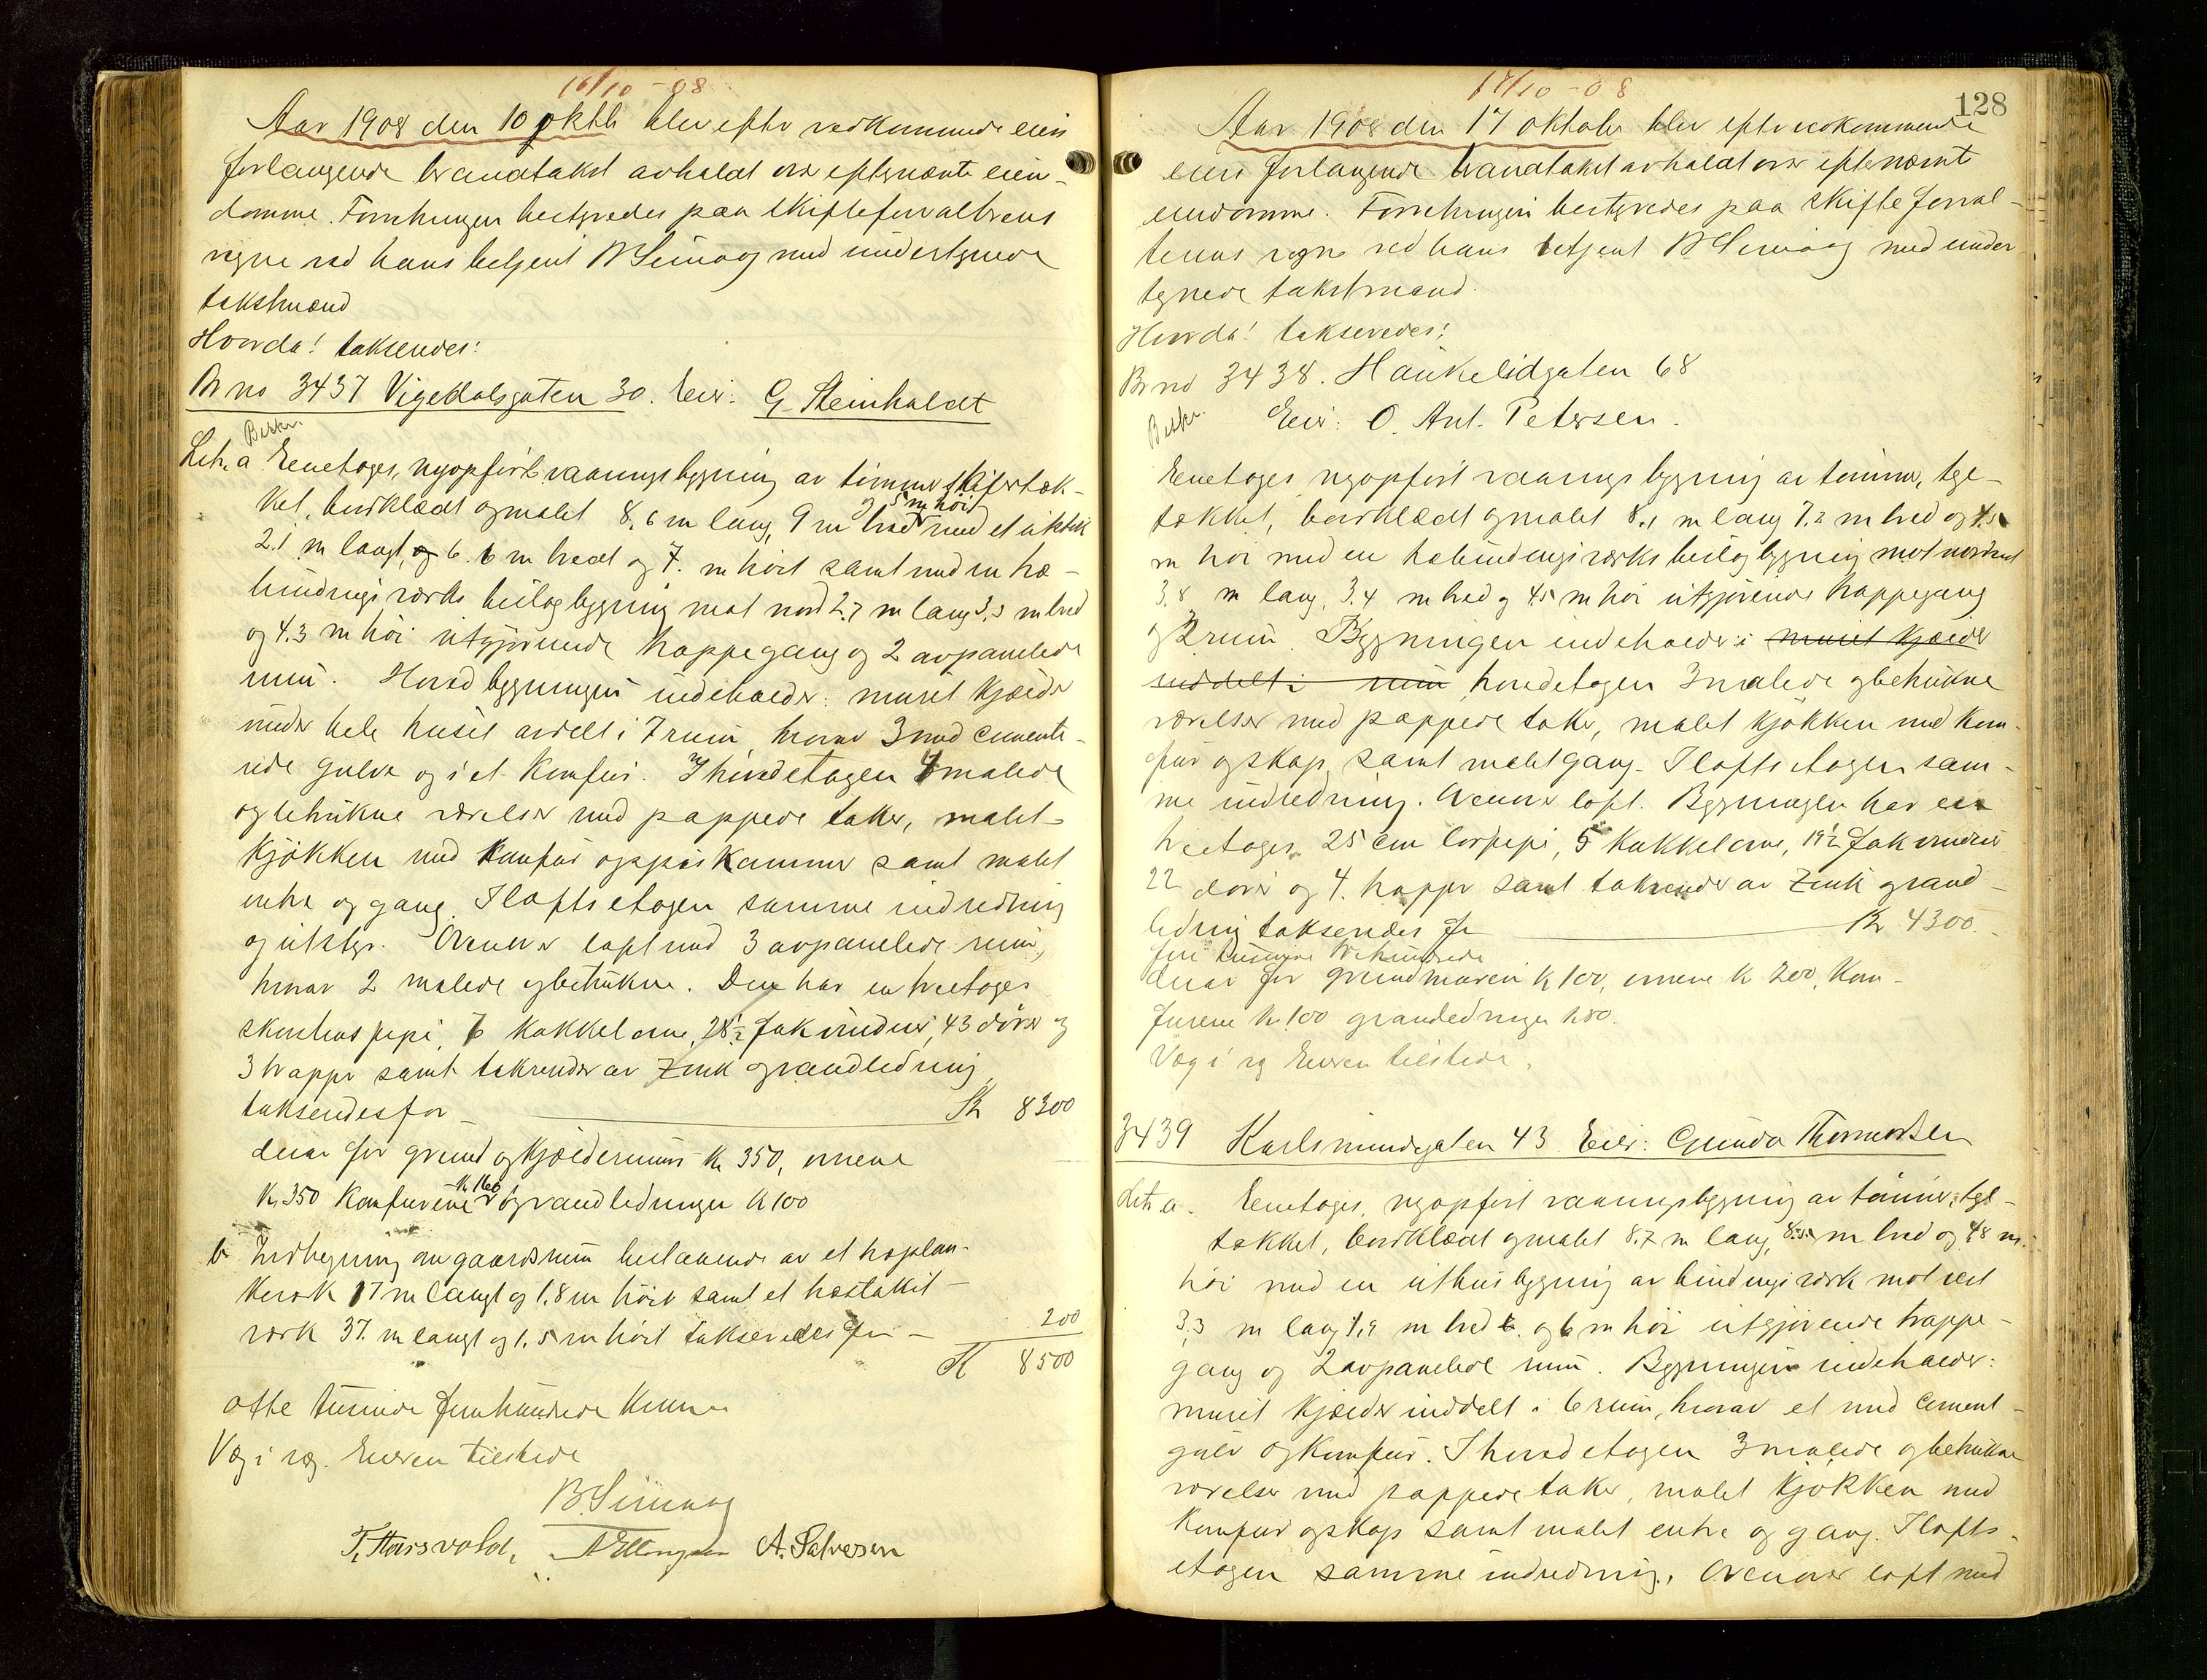 16/10 - 08
Aar 1908 den 10 oktb blev efter vedkommende eiers
forlangende brandtakst avholdt over efternævnte eien-
domme. Forretningen bestyredes paa skifteforvalterens
vegne ved hans betjent B Simog med undertegnede
takstmænd
Hvorda! takseredes:
Br no 3437 Vigedalsgaten 30. Eier: G. Steinholdt
Beskr.
Litr. a. Eenetages, nyopført vaaningsbygning av tømmer skifertæk-
ket, bordklædt og malet 8.6 m lang, 9 m bred og 5 m høi med et utstik
2.1 m langt, 6.6 m bredt og 7. m høit samt med en hø-
bindingsværks beilagbygning mot nord 2.7 m lang 3.3 m bred
og 4.3 m høi utgjørende trappegang og 2 avpanelede
rum. Hovedbygningen indeholder: muret kjælder
under hele huset avdelt i 7 rum, hvorav 3 med cemente-
rede gulve og i et komfur. I hovedetagen 4 malede
og betrukne værelser med pappede taker, malet
kjøkken med komfur og spiskammer samt malet
entre og gang. I loftsetagen samme indredning
og utstyr. Ovenover loft med 3 avpanelede rum,
hvorav 2 malede og betrukne. Den har en treetages
skorstenspipe, 6 kakkelovne, 28½ fak vinduer, 43 dører og
3 trapper samt takrender av zink og vandledning
takseredes for Kr 8300
derav for grund og kjældermurer kr 350, ovnene
kr. 350 komfurene kr 160 og vandledningen kr 100
b Indhegning om gaardsrum bestaaende av et træplan-
keværk 17 m langt og 1.8 m høit samt et træstakit-
værk 37. m langt og 1.5 m høit takseredes for 200
Kr 8500
otte tusinde femhundrede kroner
Væg i væg. Eieren tilstede
B. Simog
T. Haarsvold, A Ellingsen A. Salvesen
17/10 - 08
128
Aar 1908 den 17 oktober blev efter vedkommende
eiers forlangende brandtakst avholdt over efternævnte
eiendomme. Forretningen bestyredes paa skifteforval-
terens vegne ved hans betjent B Simog med under
tegnede takstmænd.
Hvorda! takseredes:
Br no 3438. Haukelidgaten 68
Beskr. Eier: O. Ant. Petersen.
Eenetages nyopført vaaningsbygning av tømmer, tegl-
tækket, bordklædt og malet 8.1 m lang 7.2 m bred og 4.5
m høi med en træbindingsværks beilagbygning mot nordvest
3.8 m lang, 3.4 m bred og 4.5 m høi utgjørende trappegang
og 2 rum. Bygningen indeholder: i muret kjælder
inddelt i rum hovedetagen 3 malede og betrukne
værelser med pappede taker, malet kjøkken med kom-
fur og skap, samt malet gang. I loftsetagen sam-
me indredning. Ovenover loft. Bygningen har en
treetages 25 cm lvspipe, 5 kakkelovne, 19½ fak vinduer
22 dører og 4. trapper samt takrender av zink og vand-
ledning takseredes for Kr 4300.-
fire tusinde trehundrede
derav for grundmuren kr 100, ovnene kr 200, kom-
furene kr 100 og vandledningen kr 80.
Væg i væg Eieren tilstede.
3439 Karlsmindegaten 43 Eier: Gunda Thomassen
Litr a. Eenetages, nyopført vaaningsbygning av tømmer, tegl-
tækket, bordklædt og malet 8.7 m lang, 8.5 m bred og 4.8 m.
høi med en uthusbygning av bindingsværk mot vest
3.3 m lang 1.9 m bred og 6 m høi utgjørende trappe-
gang og 2 avpanelede rum. Bygningen indeholder:
muret kjælder inddelt i 6 rum, hvorav et med cement-
gulv og komfur. I hovedetagen 3 malede og betrukne
værelser med pappede taker, malet kjøkken med
komfur og skap samt malet entre og gang. I lofts-
etagen samme indredning. Ovenover loft med